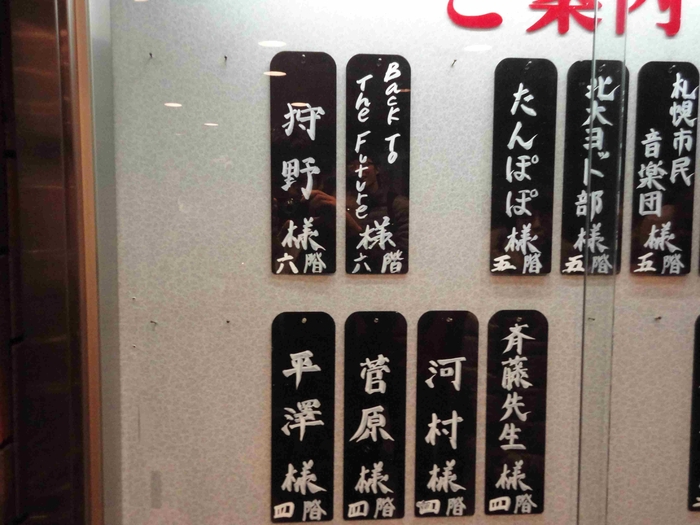 ご案内
札幌市民
音楽団
様
五階
北大ヨット部様
五階
たんぽぽ様
五階
Back To
The Future
様
六階
狩野様
六階
斉藤先生様
四階
河村様
四階
菅原様
四階
平澤様
四階